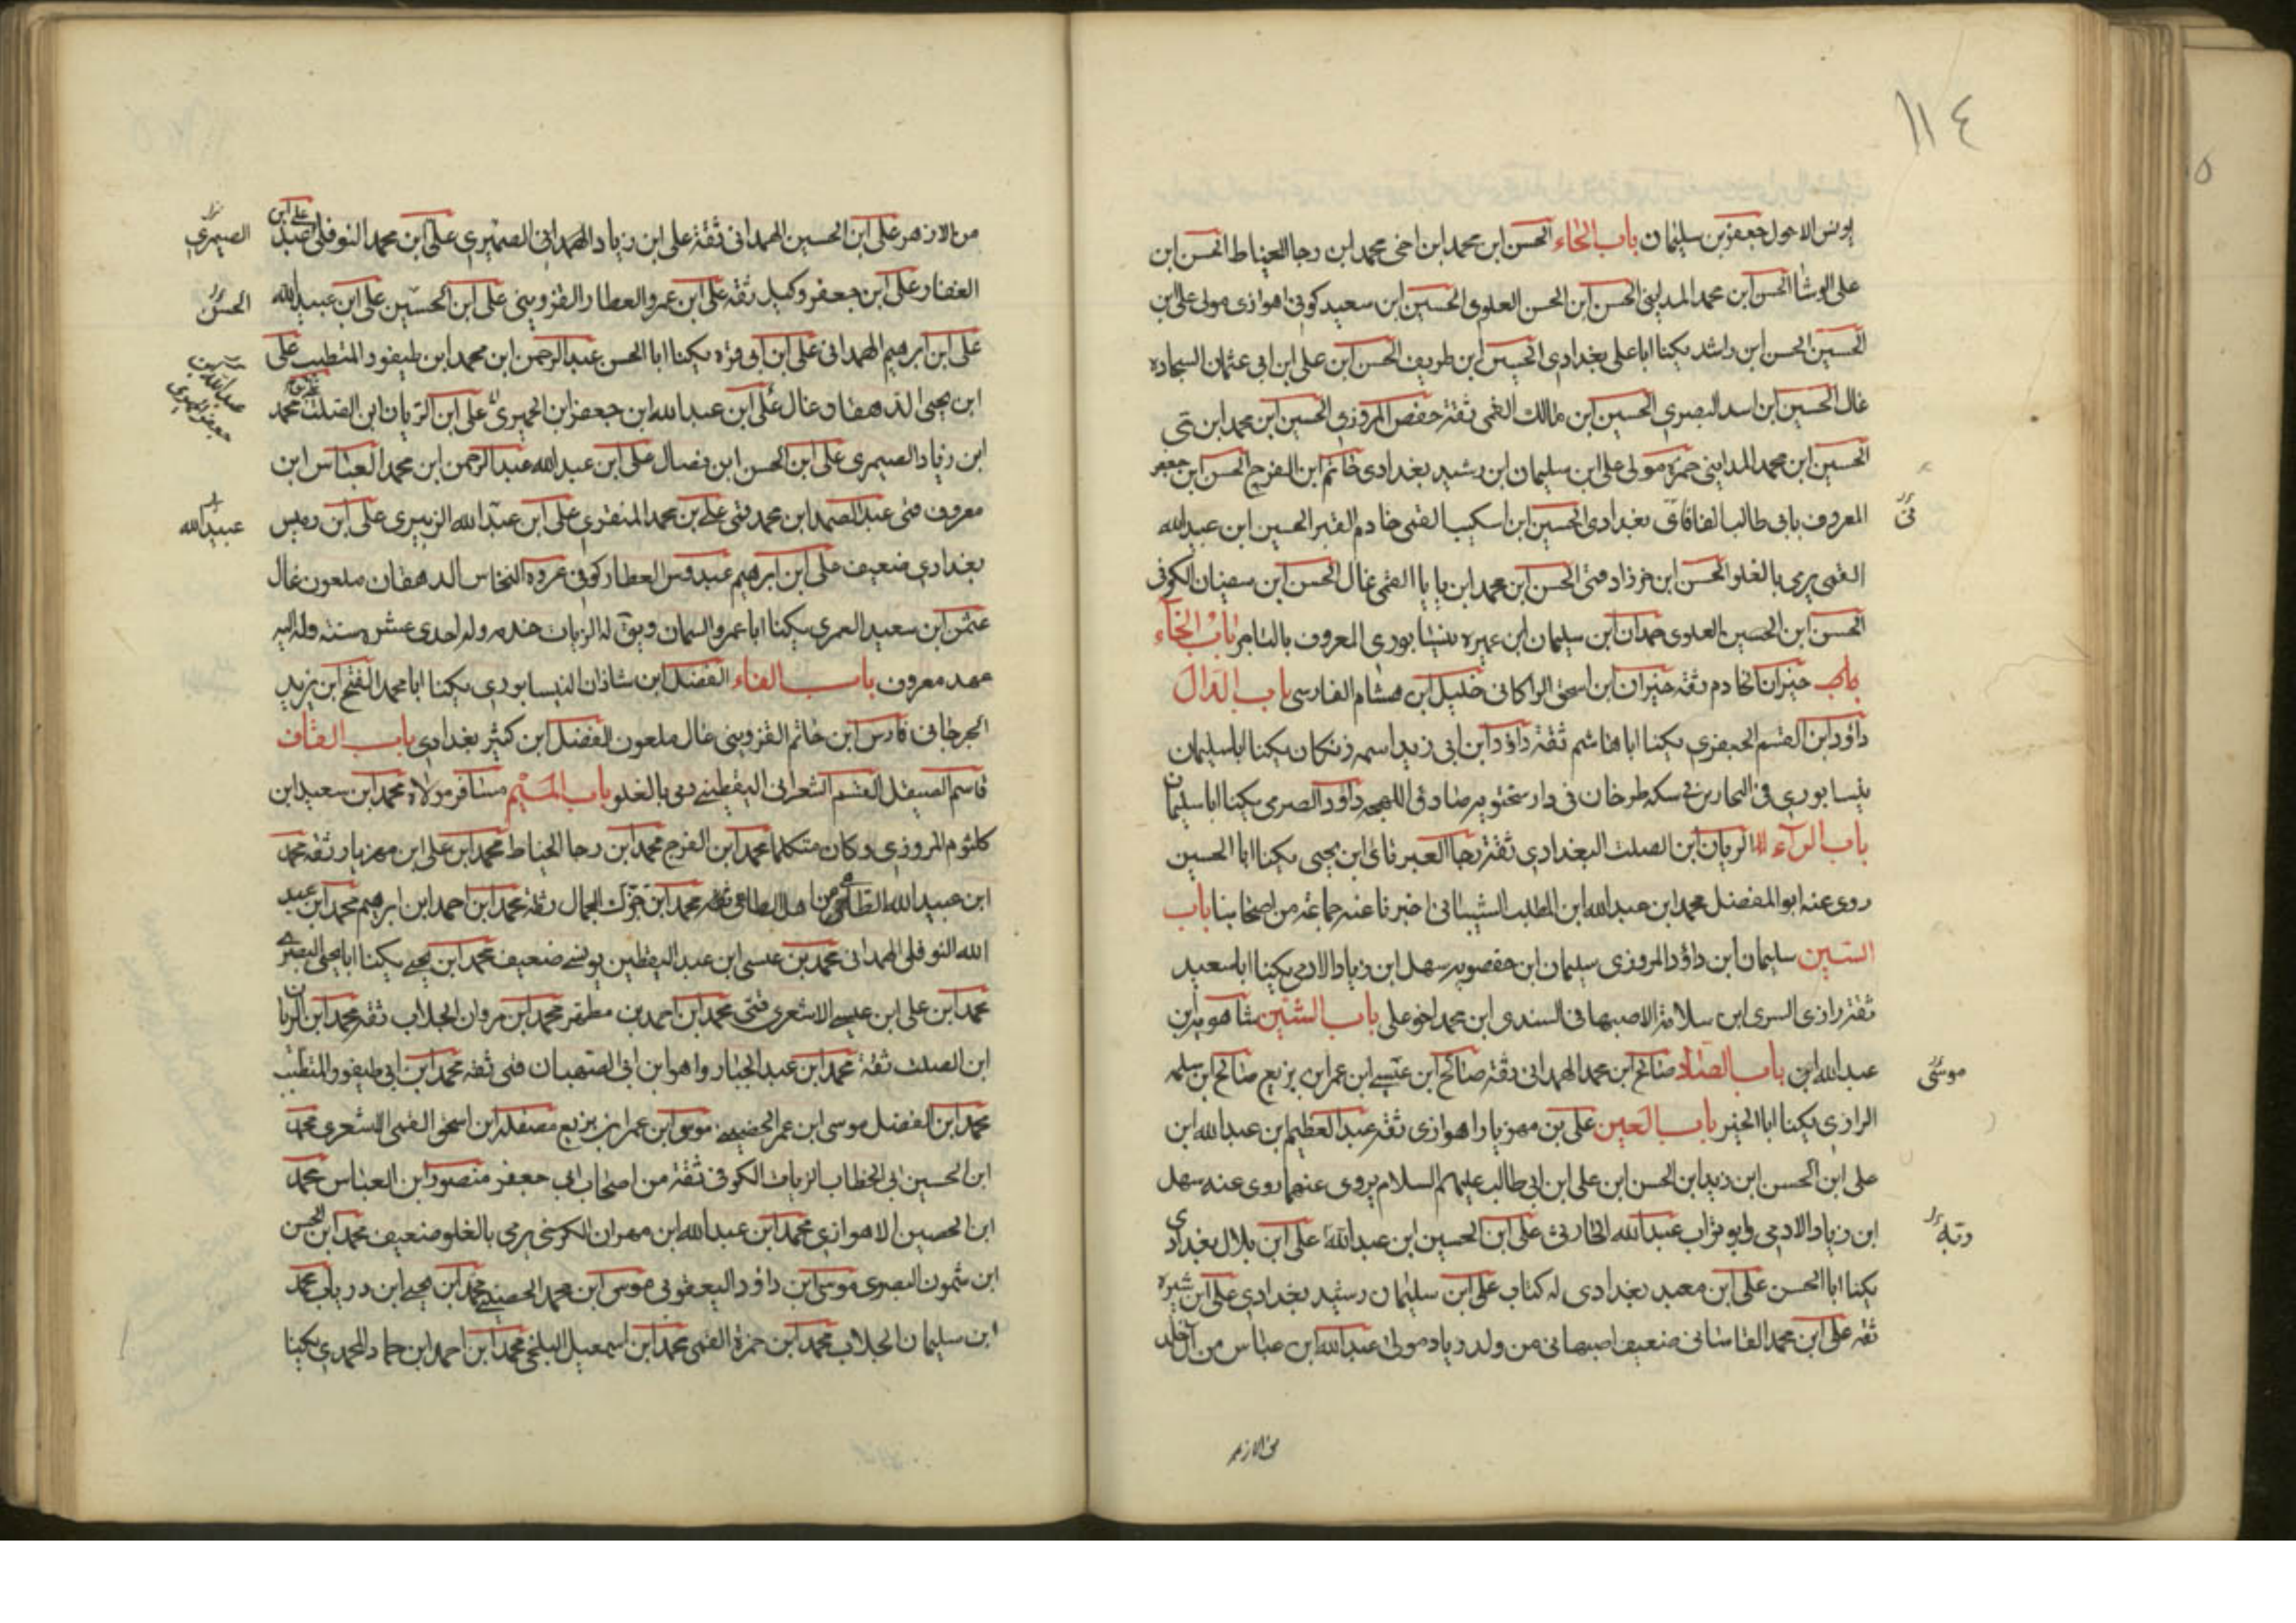 ١١٤
يونس الاحول جعفر بن سليمان باب الحاء الحسن ابن محمد ابن اخى محمد ابن رجا الخياط الحسن ابن
على الوشا الحسن ابن محمد المدايني الحسن ابن الحسن العلوى الحسين ابن سعيد كوفى اهوازى مولى على ابن
الحسين الحسن ابن راشد يكنا ابا على بغدادى الحسين ابن طريف الحسن ابن على ابن ابى عثمان السجاده
غال الحسين ابن اسد البصرى الحسين ابن مالك القمى ثقة حفص المروزى الحسين ابن محمد ابن
الحسين ابن محمد المداينى حمزة مولى على ابن سليمان ابن رشيد بغدادى خاتم ابن الفرج الحسن ابن جعفر
المعروف بابى طالب الفافاى بغدادى الحسين ابن اسكيب القمى خادم القبر الحسين ابن عبيد الله
القمى يرمى بالغلو الحسن ابن خرزاد قمى الحسن ابن محمد ابن بابا القمى غال الحسن ابن سفيان الكوفى
الحسن ابن الحسين العلوى حمدان ابن سليمان ابن عميره نيشابورى المعروف بالتاجر باب الخاء
خيران الخادم ثقة خيران ابن اسحق الراكانى خليل ابن هشام الفارسى باب الدال
داود ابن القسم الجعفرى يكنا ابا هاشم ثقة داود ابن ابى زيد اسمه زنكان يكنا ابا سليمان
نيسابورى فى النجارين فى سكه طرخان فى دار سختويه صادق اللهجه داود الصرمى يكنا ابا سليمان
باب الراء الريان ابن الصلت البغدادى ثقة رجا العبرتائى ابن يحيى يكنا ابا الحسين
روى عنه ابو المفضل محمد ابن عبد الله ابن المطلب الشيبانى اخبرنا عنه جماعة من اصحابنا باب
السين سليمان ابن داود المروزى سليمان ابن حفصويه سهل ابن زياد الادمى يكنا ابا سعيد
ثقة رازى السرى ابن سلامة الاصبهانى السندى ابن محمد اخو على باب الشين شاهويه ابن
عبد الله ابن باب الصاد صالح ابن محمد الهمدانى ثقة صالح ابن عيسى ابن عمر ابن بزيع صالح ابن سلمه
الرازى يكنا ابا الخير باب العين على بن مهزيار اهوازى ثقة عبد العظيم بن عبد الله ابن
على ابن الحسن ابن زيد ابن الحسن ابن على ابن ابى طالب عليهم السلام يروى عنهما روى عنه سهل
ابن زياد الادمى وابو تراب عبد الله الحارثى على ابن الحسين ابن عبد الله على ابن بلال بغدادى
يكنا ابا الحسن على ابن معبد بغدادى له كتاب على ابن سليمان رشيد بغدادى على ابن شيره
ثقه على ابن محمد القاسانى ضعيف اصبهانى من ولد زياد مولى عبد الله ابن عباس من آل خالد
من الازهر
فى
موسى
من الازهر على ابن الحسين الهمدانى ثقة على ابن زياد الهمدانى الصيمرى على ابن محمد النوفلى
الغفار على ابن جعفر وكيل ثقة على ابن عمرو العطار القزوينى على ابن الحسين على ابن عبيد الله
على ابن ابرهيم الهمدانى على ابن ابى قره يكنا ابا الحسن عبد الرحمن ابن محمد ابن طيفور المتطبب على
ابن يحيى الدهقان غال على ابن عبد الله ابن جعفر ابن الحميرى على ابن الريان ابن الصلت محمد
ابن زياد الصيمرى على ابن الحسن ابن فضال على ابن عبد الله عبد الرحمن ابن محمد العباس ابن
معروف قمى عبد الصمد ابن محمد قمى على بن محمد المنقرى على ابن عبد الله الزبيرى على ابن رميس
بغدادى ضعيف على ابن ابرهيم عبدوس العطار كوفى عروه النخاس الدهقان ملعون غال
عثمن ابن سعيد العمرى يكنا ابا عمرو السمان ويق له الزيات خدمه وله احدى عشره سنة وله اليه
عهد معروف باب الفاء الفضل ابن شاذان النيسابورى يكنا ابا محمد الفتح ابن يزيد
الجرجانى فارس ابن خاتم القزوينى غال ملعون الفضل ابن كثير بغدادى باب القاف
قاسم الصيقل القسم الشعرانى اليقطينى رمى بالغلو باب الميم مسافر مولاه محمد ابن سعيد ابن
كلثوم المروزى وكان متكلما محمد ابن الفرج محمد ابن رجا الخياط محمد ابن على ابن مهزيار ثقه محمد
ابن عبيد الله محمد ابن جزك الجمال ثقة محمد ابن احمد ابن ابرهيم محمد ابن عبد
الله النوفلى الهمدانى محمد بن عيسى ابن عبد اليقطين يونسى ضعيف محمد ابن يحيى يكنا ابا يحيى البصرى
محمد ابن على ابن عيسى الاشعرى قمى محمد ابن احمد بن مطهر محمد ابن مروان الجلاب ثقه محمد ابن الريان
ابن الصلت ثقة محمد ابن عبد الجبار واهو ابن ابى الصهبان قمى ثقه محمد ابن ابى طيفور المتطبب
محمد ابن الفضل موسى ابن عمر الحضينى موسى ابن عمر ابن بزيع مصقله ابن اسحق القمى الاشعرى محمد
ابن الحسين ابى الخطاب الزيات الكوفى ثقة من اصحاب ابى جعفر منصور ابن العباس محمد
ابن الحصين الاهوازى محمد ابن عبد الله ابن مهران الكرخى يرمى بالغلو ضعيف محمد ابن الحسن
ابن شمون البصرى موسى ابن داود اليعقوبى موسى ابن محمد الحضينى محمد ابن يحيى ابن درياب محمد
ابن سليمان الجلاب محمد ابن حمزة القمى محمد ابن اسمعيل البلخى محمد ابن احمد ابن حماد المحمودى يكنا
الصيمرى
الحسن
عبيد الله